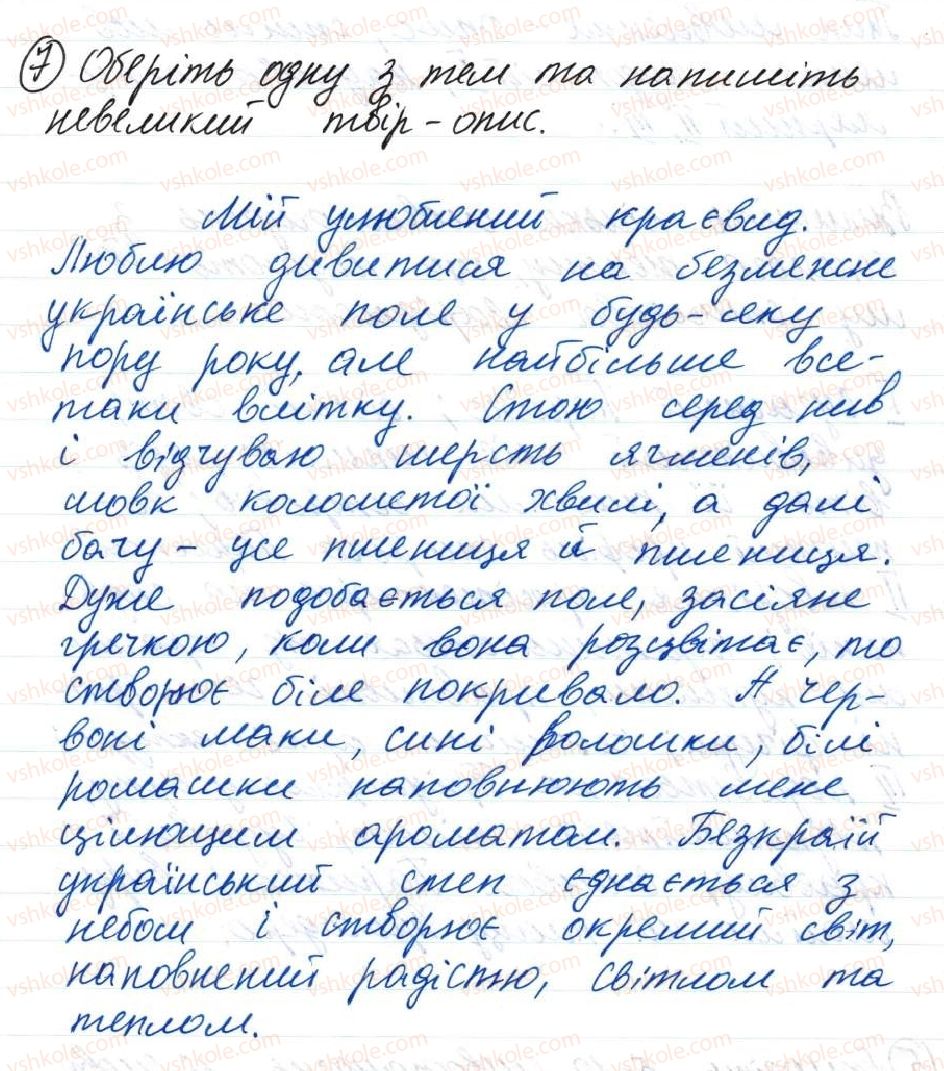 7 Оберіть одну з тем та напишіть
невеликий твір-опис.
Мій улюблений краєвид.
Люблю дивитися на безмежне
українське поле у будь-яку
пору року, але найбільше все-
таки влітку. Стою серед нив
і відчуваю шерсть ячменів,
шовк колосистої хвилі, а далі
бачу - усе пшениця й пшениця.
Дуже подобається поле, засіяне
гречкою, коли вона розцвітає, то
створює біле покривало. А чер-
воні маки, сині волошки, білі
ромашки наповнюють мене
цілющим ароматом. Безкраїй
український степ єднається з
небом і створює окремий світ,
наповнений радістю, світлом та
теплом.